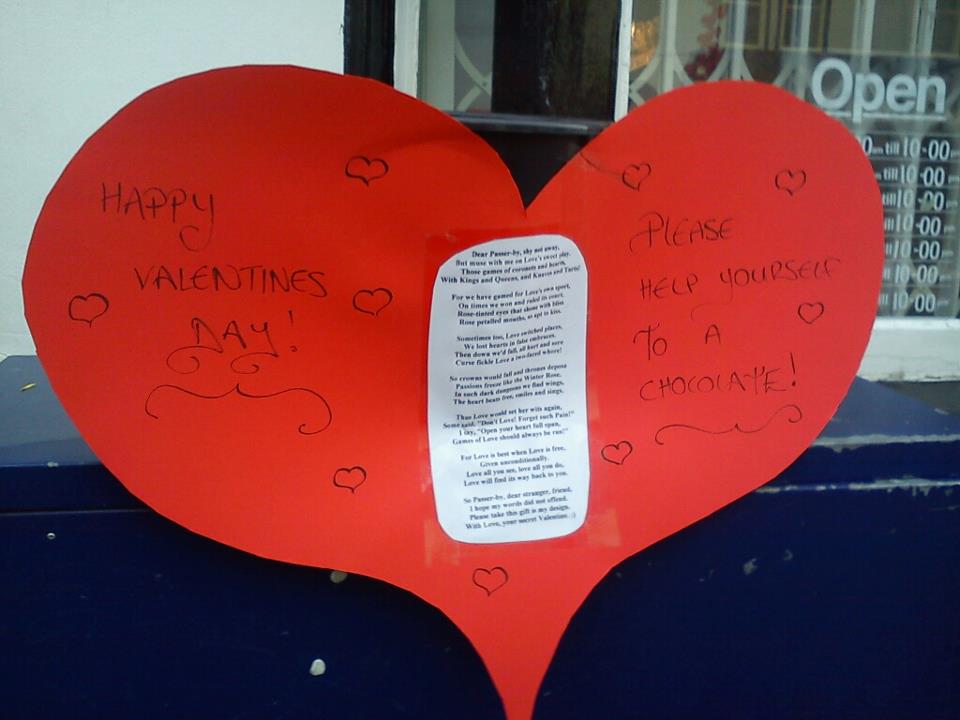 HAPPY
VALENTINES
DAY!
Dear Passer-by, shy not away,
But muse with me on Love's sweet play.
Those games of coronets and hearts,
With Kings and Queens, and Knaves and Tarts!
For we have gamed for Love's own sport,
On times we won and ruled its court.
Rose-tinted eyes that shone with bliss
Rose petalled mouths, so apt to kiss.
Sometimes too, Love switched places,
We lost hearts in false embraces.
Then down we'd fall, all hurt and sore
Curse fickle Love a two-faced whore!
So crowns would fall and thrones depose
Passions freeze like the Winter Rose.
In such dark dungeons we find wings,
The heart beats free, smiles and sings.
Thus Love would set her wits again,
Some said, "Don't Love! Forget such Pain!"
I say, "Open your heart full span,
Games of Love should always be ran!"
For Love is best when Love is free,
Given unconditionally.
Love all you see, love all you do,
Love will find its way back to you.
So Passer-by, dear stranger, friend,
I hope my words did not offend.
Please take this gift is my design,
With Love, your secret Valentine. :)
PLEASE
HELP YOURSELF
TO A
CHOCOLATE!
Open
till 10-00
till 10-00
10-00
10-00
10-00
10-00
10-00